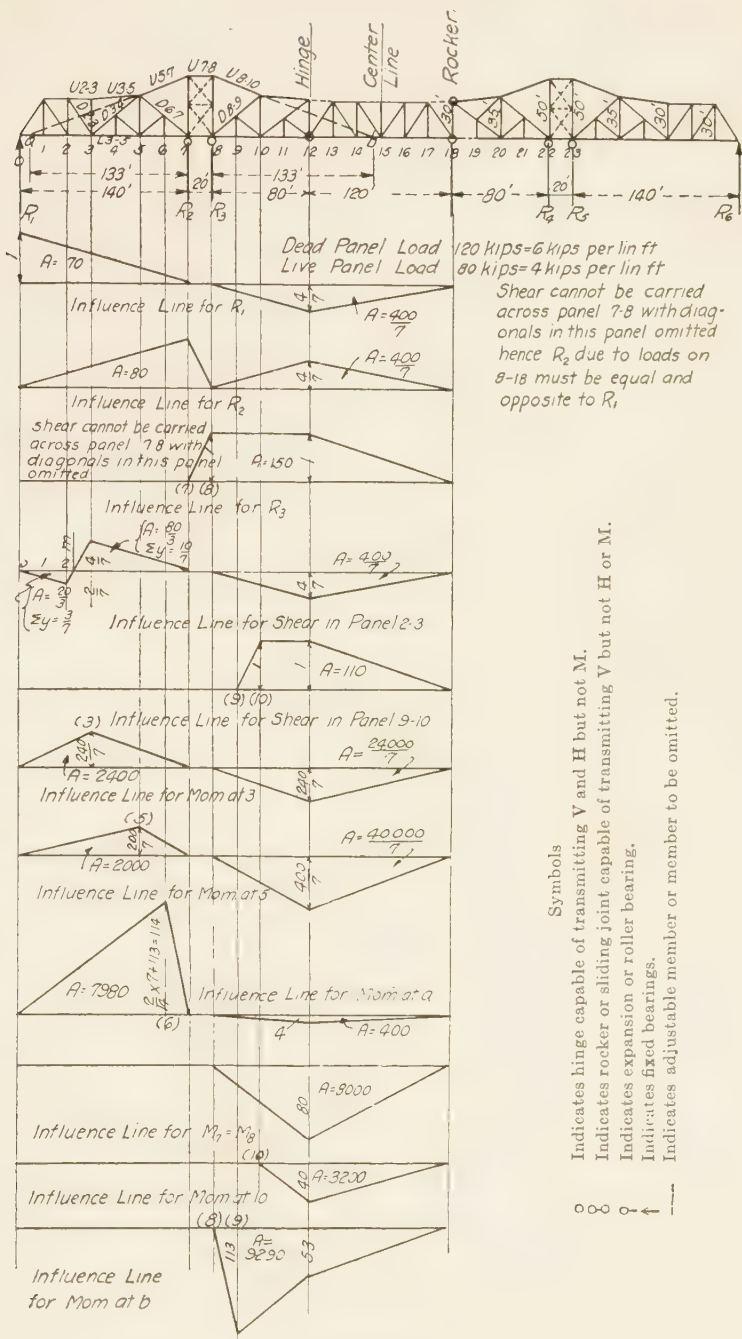 Hinge
Center
Line
Rocker
U2-3
U3-5
U5-7
U7-8
U8-10
D3-4
D6-7
D8-9
L3-5
30'
35'
50'
50'
35'
30'
30'
0 a 1 2 3 4 5 6 7 8 9 10 11 12 b 15 16 17 18 19 20 21 22 23
133'
133'
140'
20'
80'
120'
80'
20'
140'
R1
R2
R3
R4
R5
R6
Dead Panel Load 120 kips=6 kips per lin ft
Live Panel Load 80 kips=4 kips per lin ft
Shear cannot be carried
across panel 7-8 with diag-
onals in this panel omitted
hence R2 due to loads on
8-18 must be equal and
opposite to R1
1
A=70
4/7
A=400/7
Influence Line for R1
A=80
4/7
A=400/7
Influence Line for R2
shear cannot be carried
across panel 7 8 with
diagonals in this panel
omitted
1
A=150
(7) (8)
Influence Line for R3
0 1 2
A=80/3
Σy=10/7
A=20/3
Σy=3/7
2/7
4/7
4/7
A=400/7
Influence Line for Shear in Panel 2-3
1
1
A=110
(9) (10)
(3) Influence Line for Shear in Panel 9-10
240/7
A=2400
240/7
A=24000/7
Influence Line for Mom at 3
(5)
200/7
A=2000
400/7
A=40000/7
Influence Line for Mom at 5
A=7980
2/14 x7+113=114
(6)
Influence Line for Mom at a
4
A=400
80
A=8000
Influence Line for M7=M8
(10)
40
A=3200
Influence Line for Mom at 10
(8) (9)
113
A=
9290
53
Influence Line
for Mom at b
Symbols
Indicates hinge capable of transmitting V and H but not M.
Indicates rocker or sliding joint capable of transmitting V but not H or M.
Indicates expansion or roller bearing.
Indicates fixed bearings.
Indicates adjustable member or member to be omitted.